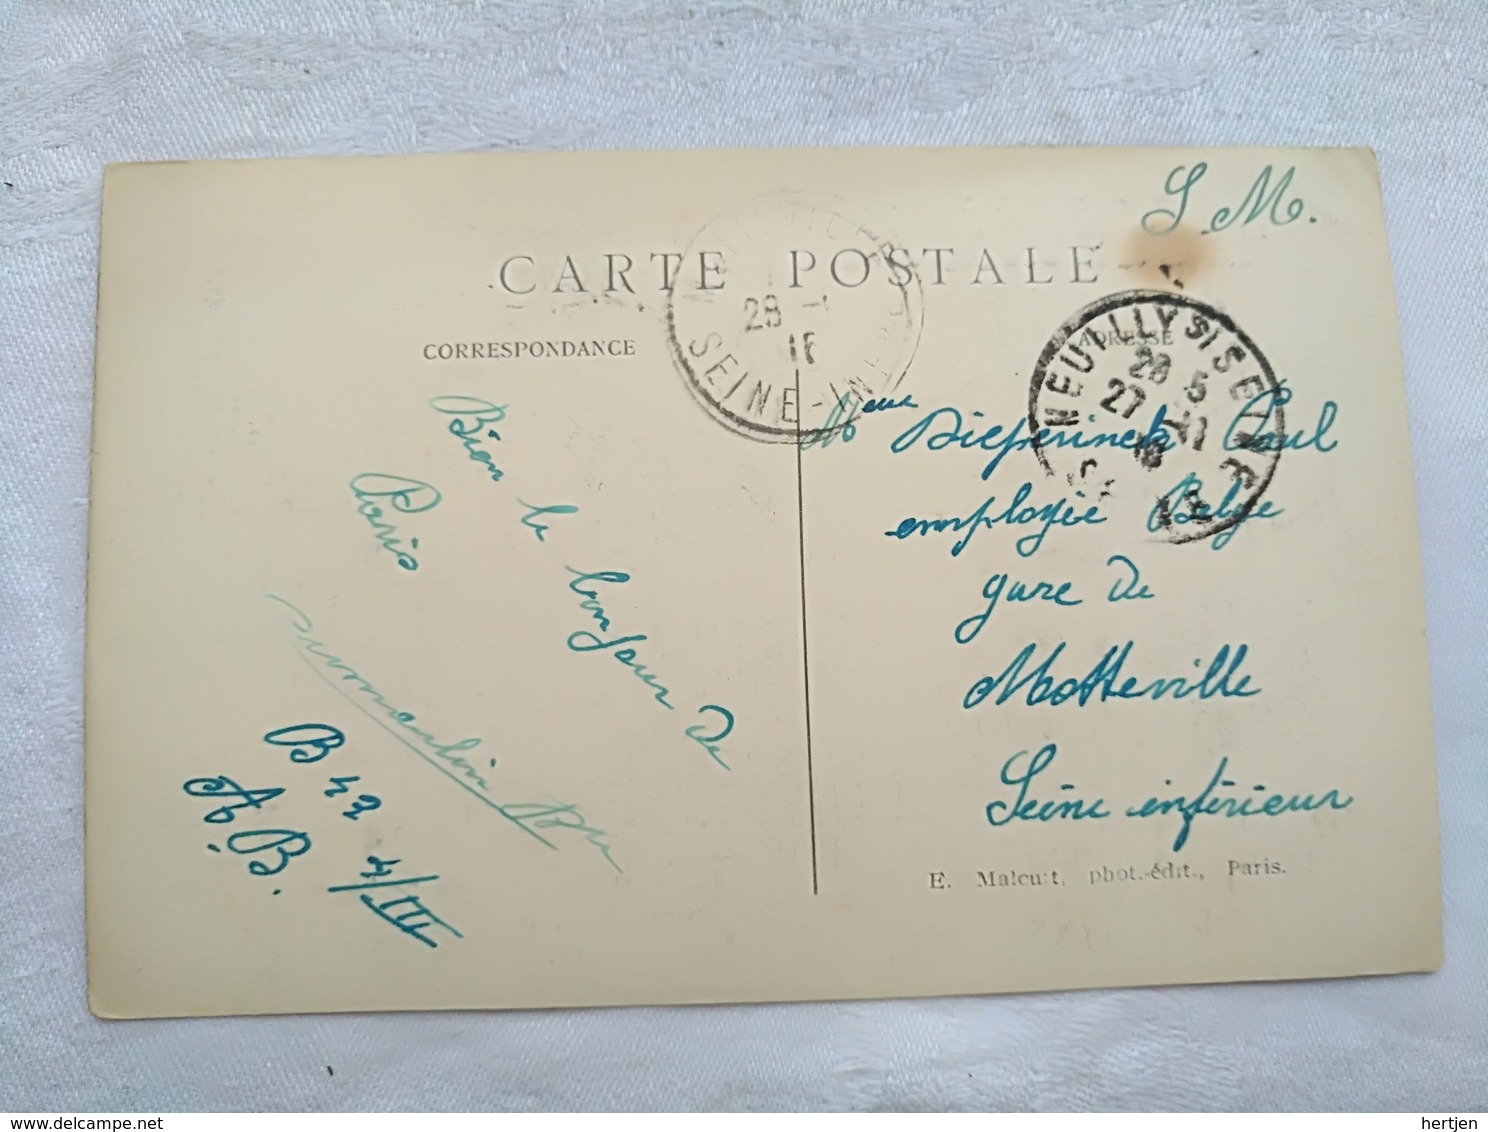 S.M.
CARTE POSTALE
CORRESPONDANCE
ADRESSE
28 -1
16
SEINE-INFRE
NEUILLY S/ SEINE
28 5
27
16
Bien le bonjour de
Paris
B 42 4/III
A.B.
Mme Dieperinck Paul
employée Belge
gare de
Motteville
Seine inférieur
E. Malcuit, phot.-édit., Paris.
hertjen